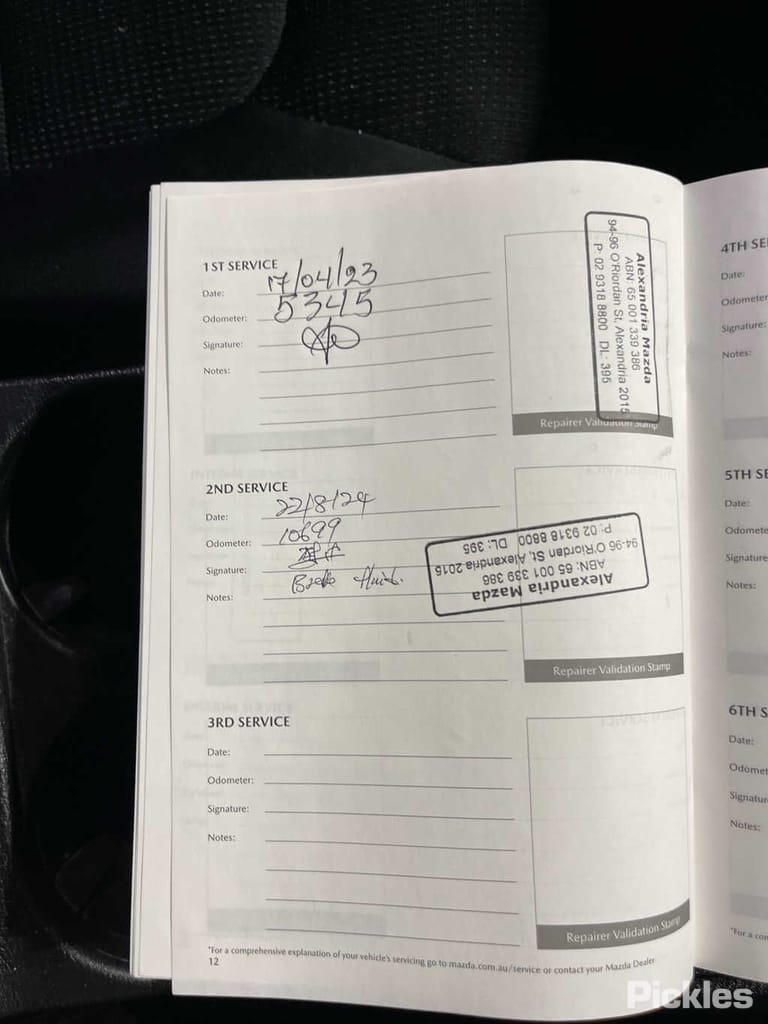 1ST SERVICE
Date: 17/04/23
Odometer: 5345
Signature:
Notes:
Alexandria Mazda
ABN: 65 001 339 386
94-96 O'Riordan St, Alexandria 2015
P: 02 9318 8800 DL: 395
Repairer Validation Stamp
2ND SERVICE
Date: 22/8/24
Odometer: 10699
Signature:
Notes: Brake fluid.
Alexandria Mazda
ABN: 65 001 339 386
94-96 O'Riordan St, Alexandria 2015
P: 02 9318 8800 DL: 395
Repairer Validation Stamp
3RD SERVICE
Date:
Odometer:
Signature:
Notes:
Repairer Validation Stamp
*For a comprehensive explanation of your vehicle's servicing go to mazda.com.au/service or contact your Mazda Dealer
12
4TH SE
Date:
Odometer
Signature:
Notes:
5TH SE
Date:
Odomete
Signature
Notes:
6TH S
Date:
Odomet
Signatur
Notes:
*For a con
Pickles